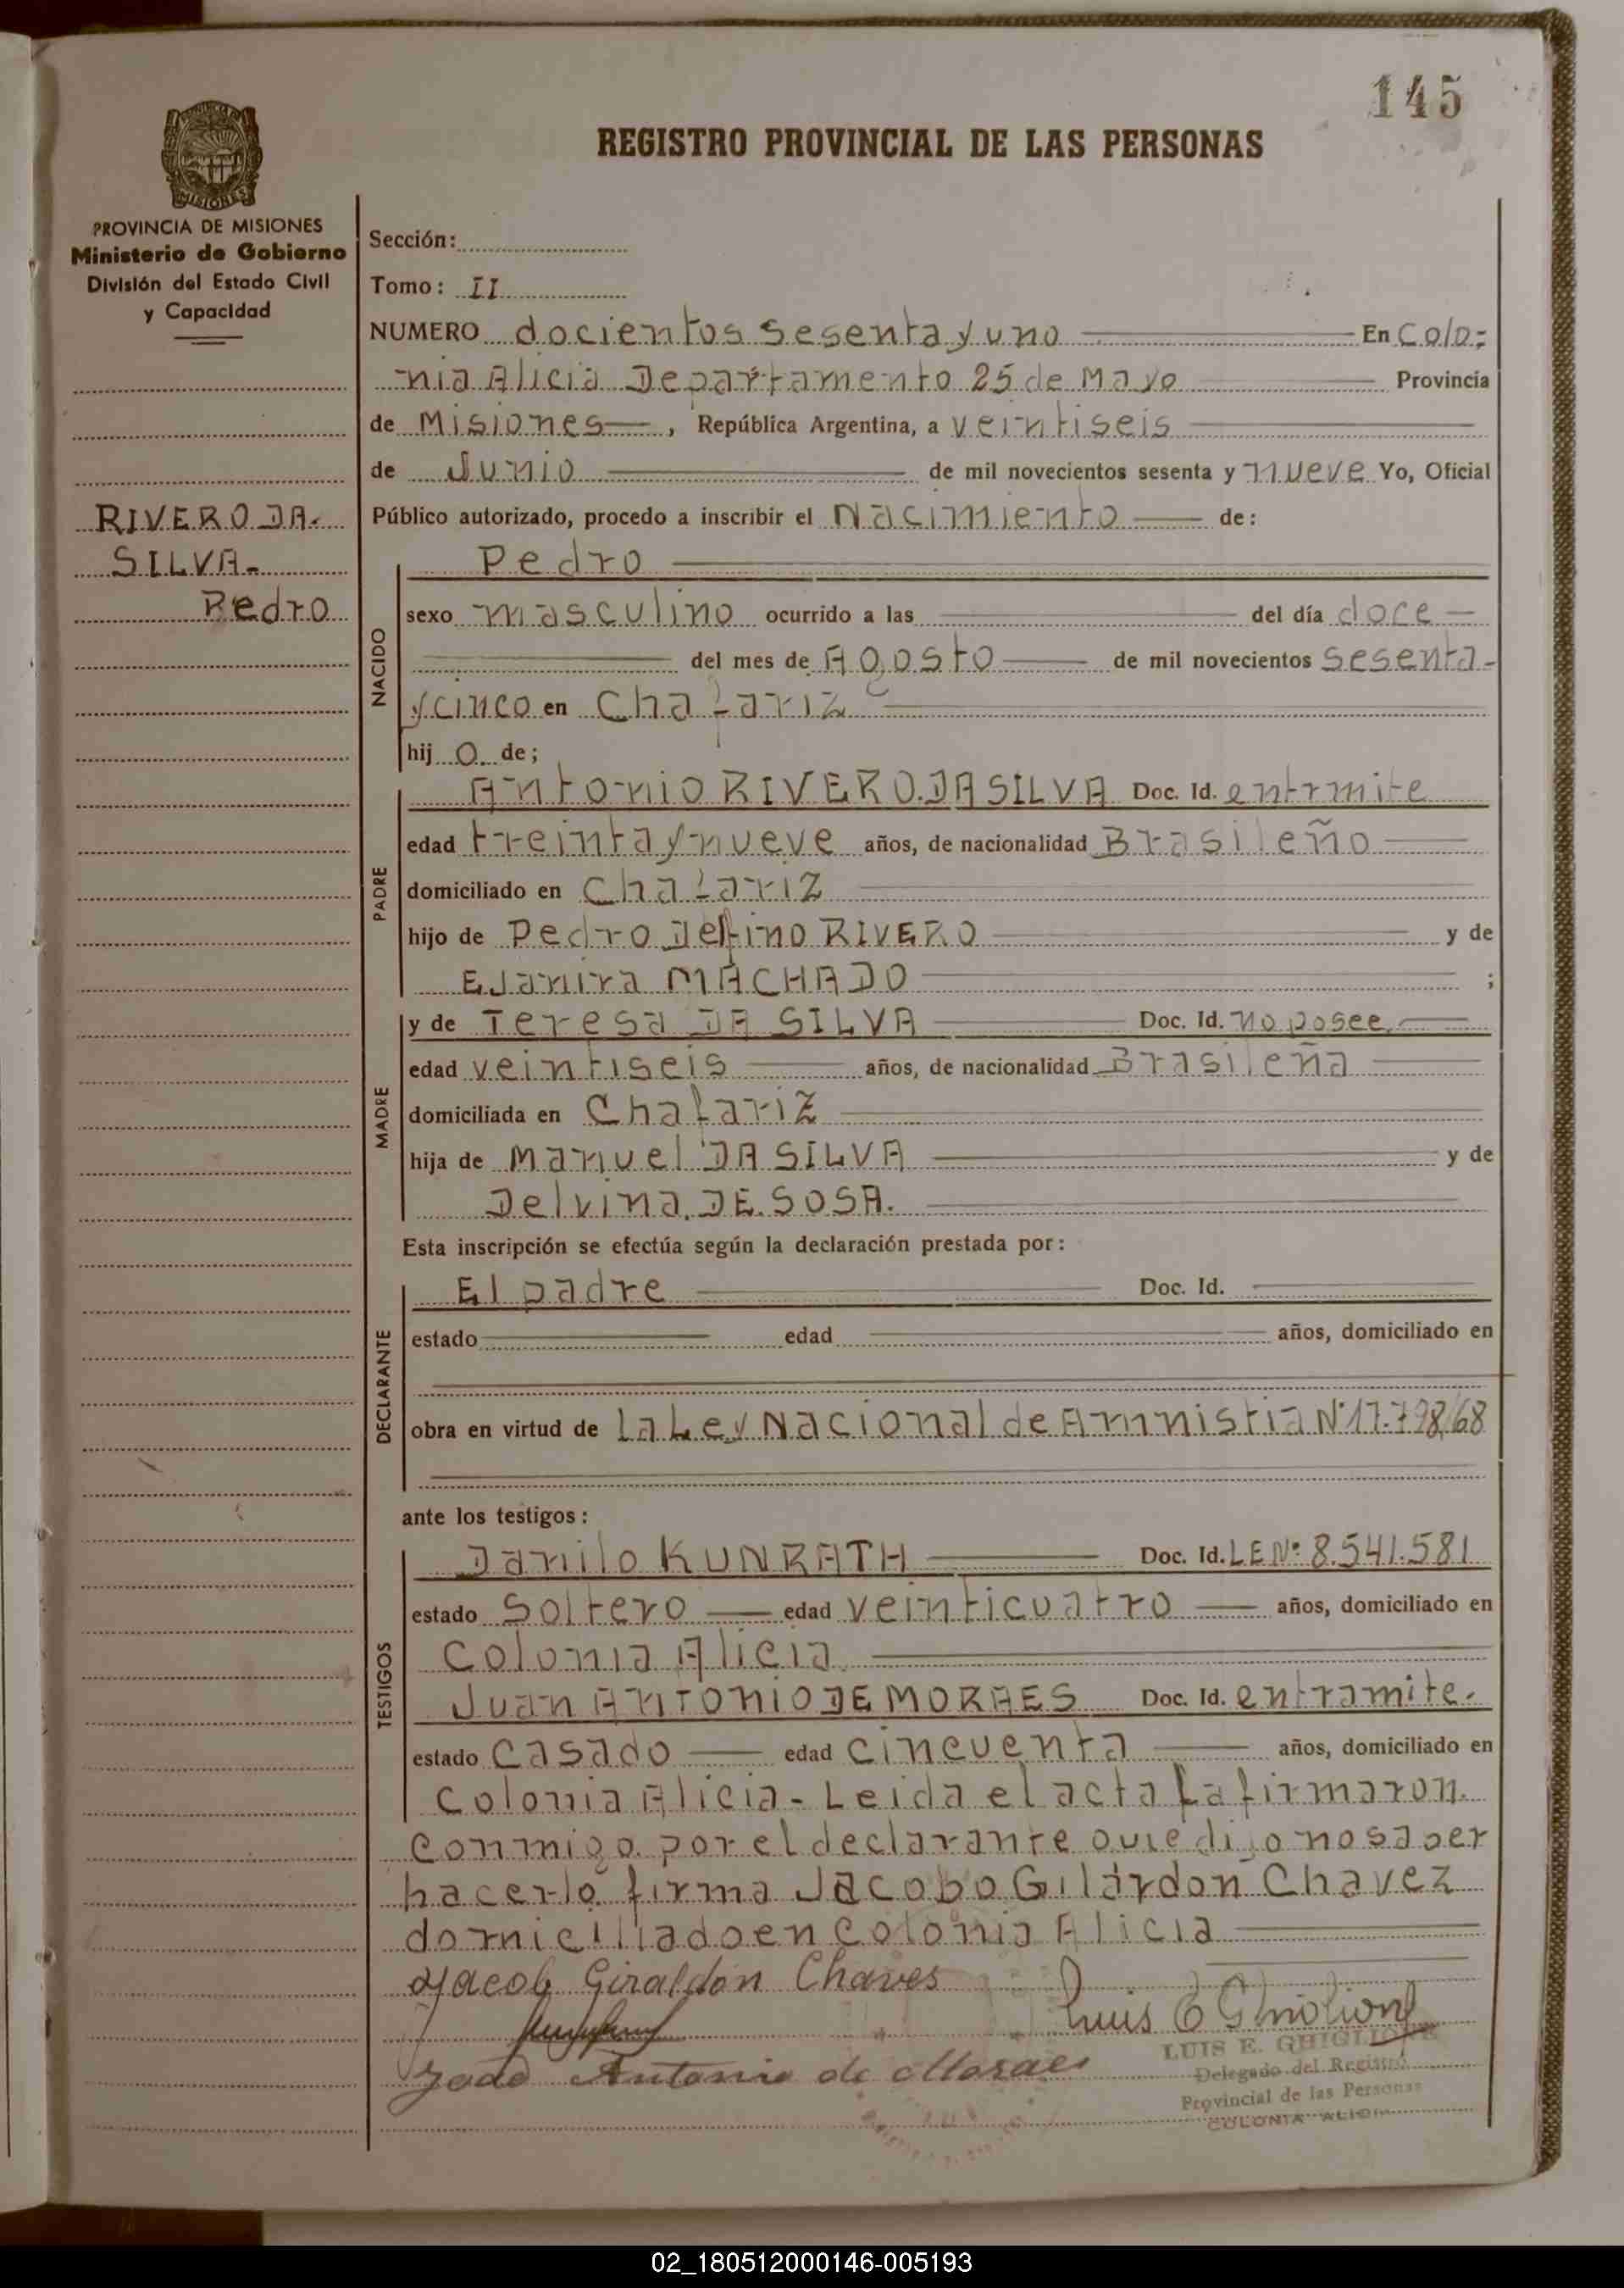 145
REGISTRO PROVINCIAL DE LAS PERSONAS
PROVINCIA DE MISIONES
MISIONES
PROVINCIA DE MISIONES
Ministerio de Gobierno
División del Estado Civil
y Capacidad
RIVERO DA
SILVA.
Pedro
Sección:
Tomo: II
NUMERO docientos sesenta y uno En Colo-
nia Alicia Departamento 25 de Mayo Provincia
de Misiones, República Argentina, a veintiseis
de Junio de mil novecientos sesenta y nueve Yo, Oficial
Público autorizado, procedo a inscribir el Nacimiento de:
NACIDO
Pedro
sexo masculino ocurrido a las del día doce
del mes de Agosto de mil novecientos sesenta
y cinco en Chafariz
hij o de;
PADRE
Antonio RIVERO DA SILVA Doc. Id. entrmite
edad treinta y nueve años, de nacionalidad Brasileño
domiciliado en Chafariz
hijo de Pedro Delfino RIVERO y de
EJanira MACHADO ;
MADRE
y de Teresa DA SILVA Doc. Id. no posee
edad veintiseis años, de nacionalidad Brasileña
domiciliada en Chafariz
hija de Manuel DA SILVA y de
Delvina DE SOSA.
Esta inscripción se efectúa según la declaración prestada por:
DECLARANTE
El padre Doc. Id.
estado edad años, domiciliado en
obra en virtud de la Ley Nacional de Amnistia Nº 17.798/68
ante los testigos:
TESTIGOS
Danilo KUNRATH Doc. Id. LE Nº 8.541.581
estado Soltero edad veinticuatro años, domiciliado en
Colonia Alicia
Juan ANTONIO DE MORAES Doc. Id. entramite.
estado Casado edad cincuenta años, domiciliado en
Colonia Alicia - Leida el acta la firmaron
conmigo por el declarante quie dijo no saber
hacerlo firma Jacobo Gilardon Chavez
domiciliado en Colonia Alicia
Jacob Giraldon Chaves
Luis E Ghiglione
João Antonio de Moraes
LUIS E. GHIGLIONE
Delegado del Registro
Provincial de las Personas
COLONIA ALICIA
02_180512000146-005193